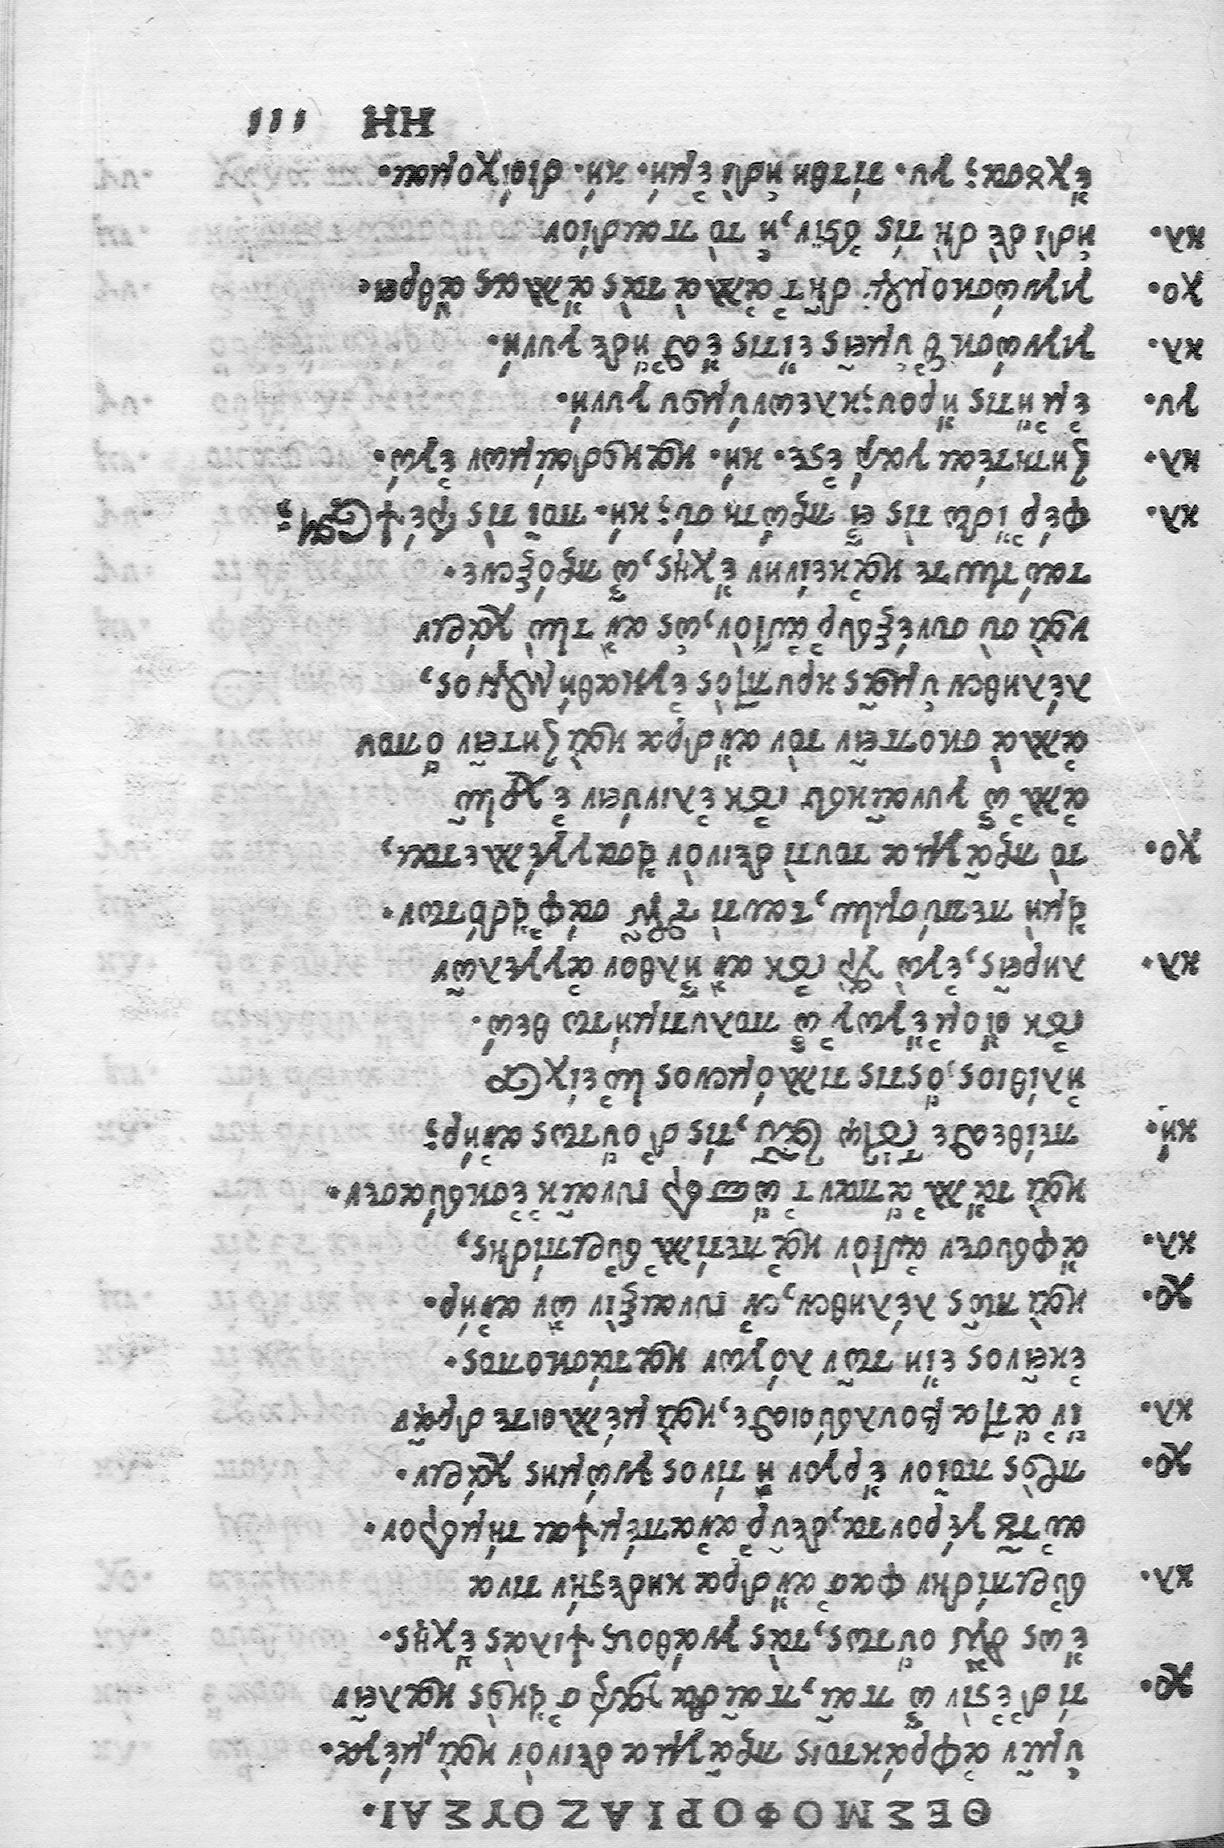 ΘΕΣΜΟΦΟΡΙΑΖΟΥΣΑΙ.
ὑμῖν ἀφράκτοις πρᾶγμα δεινὸν καὶ μέγα.
Χο. τί δ' ἐστὶν ὦ παῖ, παῖδα γάρ σ' εἰκὸς καλεῖν
ἕως ἂν οὕτως, τὰς γνάθους ψιλὰς ἔχῃς.
κλ. εὐριπίδην φασ' ἄνδρα κηδεστήν τινα
αὐτοῦ γέροντα, δεῦρ' ἀναπέμψαι τήμερον.
Χο. πρὸς ποῖον ἔργον ἢ τίνος γνώμης χάριν.
κλ. ἵν' ἅττα βουλεύοισθε, καὶ μέλλοιτε δρᾶν
ἐκεῖνος εἴη τῶν λόγων κατάσκοπος.
Χο. καὶ πῶς λέληθεν, ἐν γυναιξὶν ὢν ἀνήρ.
κλ. ἄφευσεν αὐτὸν κἀπέτιλλ' εὐριπίδης,
καὶ τἄλλ' ἅπαντ' ὥσπερ γυναῖκ' ἐσκεύασεν.
κή. πείθεσθε τούτῳ ταῦτα, τίς δ' οὕτως ἀνήρ;
ἠλίθιος, ὅστις τιλλόμενος ἠνείχετο
οὐκ οἴομ' ἔγωγ' ὦ πολυτιμήτω θεώ.
κλ. ληρεῖς, ἐγὼ γὰρ οὐκ ἂν ἦλθον ἀγγελῶν
εἰ μὴ πεπύσμην, ταυτὶ τῶν σάφ' εἰδότων.
χο. τὸ πρᾶγμα τουτὶ δεινὸν εἰσαγγέλλεται,
ἀλλ' ὦ γυναῖκες οὐκ ἐλινύειν ἐχρῆν
ἀλλὰ σκοπεῖν τὸν ἄνδρα καὶ ζητεῖν ὅπου
λέληθεν ὑμᾶς κρυπτὸς ἐγκαθήμενος,
καὶ σὺ συνέξευρ' αὐτὸν, ὡς ἂν τὴν χάριν
ταύτην τε κἀκείνην ἔχῃς, ὦ πρόξενε.
κλ. φέρ' ἴδω τίς εἶ πρώτη σύ; κή. ποῖ τίς τρέψεται;
κλ. ζητητέαι γάρ ἐστε. κή. κακοδαίμων ἐγώ.
γυ. ἔμ' ἥτις ἤρου; κλεωνύμου γυνή.
κλ. γιγνώσκεθ' ὑμεῖς εἴτις ἔσθ' ἥδε γυνή,
χο. γιγνώσκομεν δῆτ' ἀλλὰ τὰς ἄλλας ἄθρει.
κλ. ἡδὶ δὲ δὴ τίς ἐστιν, ἣ τὸ παιδίον
ἔχουσα; γυ. τίτθη νὴ δί' ἐμή. κή. διοίχομαι.
HH iii